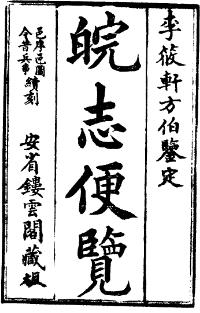 李筱軒方伯鑒定
皖志便覽
邑庠邑圖
今昔兵事續刻
安省鏤雲閣藏板